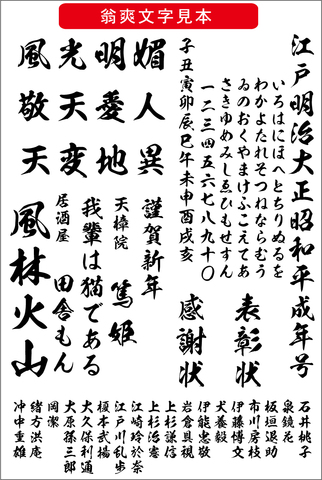 翁爽文字見本
江戸明治大正昭和平成年号
いろはにほへとちりぬるを
わかよたれそつねならむう
ゐのおくやまけふこえてあ
さきゆめみしゑひもせすん
一二三四五六七八九十〇
子丑寅卯辰巳午未申酉戌亥
媚人異
明愛地
光天変
風敬天
表彰状
感謝状
謹賀新年
天樟院
篤姫
我輩は猫である
居酒屋
田舎もん
風林火山
石井桃子
泉鏡花
板垣退助
市川房枝
伊藤博文
犬養毅
伊能忠敬
岩倉具視
上杉謙信
上杉治憲
江崎玲於奈
江戸川乱歩
榎本武揚
大久保利通
大原孫三郎
岡潔
緒方洪庵
沖中重雄